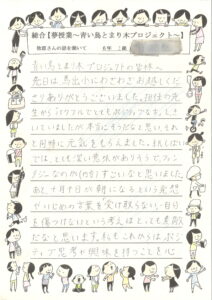 総合【夢授業～青い鳥とまり木プロジェクト～】
牧原さんの話を聞いて 6年 2組
青い鳥とまり木プロジェクトの皆様へ
先日は馬出小にわざわざお越しくだ
さりありがとうございました。担任の先
生からパワフルでとてもポジティブな方、とき
いていましたが本当にそうだなと思い、それ
と同時に元気をもらえました。
では、とても深い意味がありそうで
なのか(？)すごいなと思いました。
あと十月十日が朝になるという発想
やいじめの言葉を受け取らない、自分
を傷つけないという考えはとっても素敵
だなと思います。私もこれからはポジ
ティブ思考や興味を持つことを心